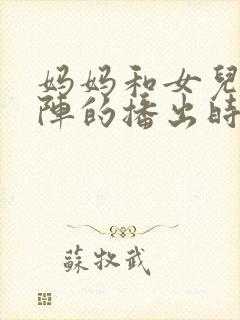 妈妈和女兒
陣的播出時
蘇牧武